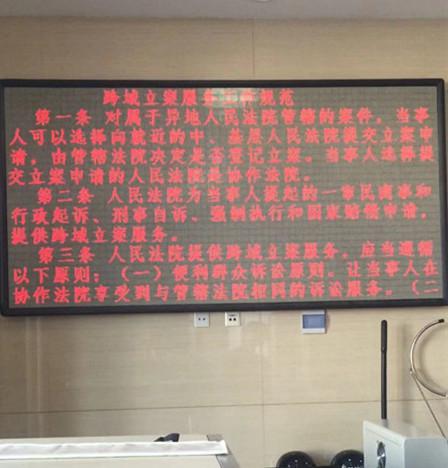 跨域立案服务工作规范
第一条 对属于异地人民法院管辖的案件，当事
人可以选择向就近的中、基层人民法院提交立案申
请，由管辖法院决定是否登记立案。当事人选择提
交立案申请的人民法院是协作法院。
第二条 人民法院为当事人提起的一审民商事和
行政起诉、刑事自诉、强制执行和国家赔偿申请，
提供跨域立案服务。
第三条 人民法院提供跨域立案服务，应当遵循
以下原则：（一）便利群众诉讼原则。让当事人在
协作法院享受到与管辖法院相同的诉讼服务。（二